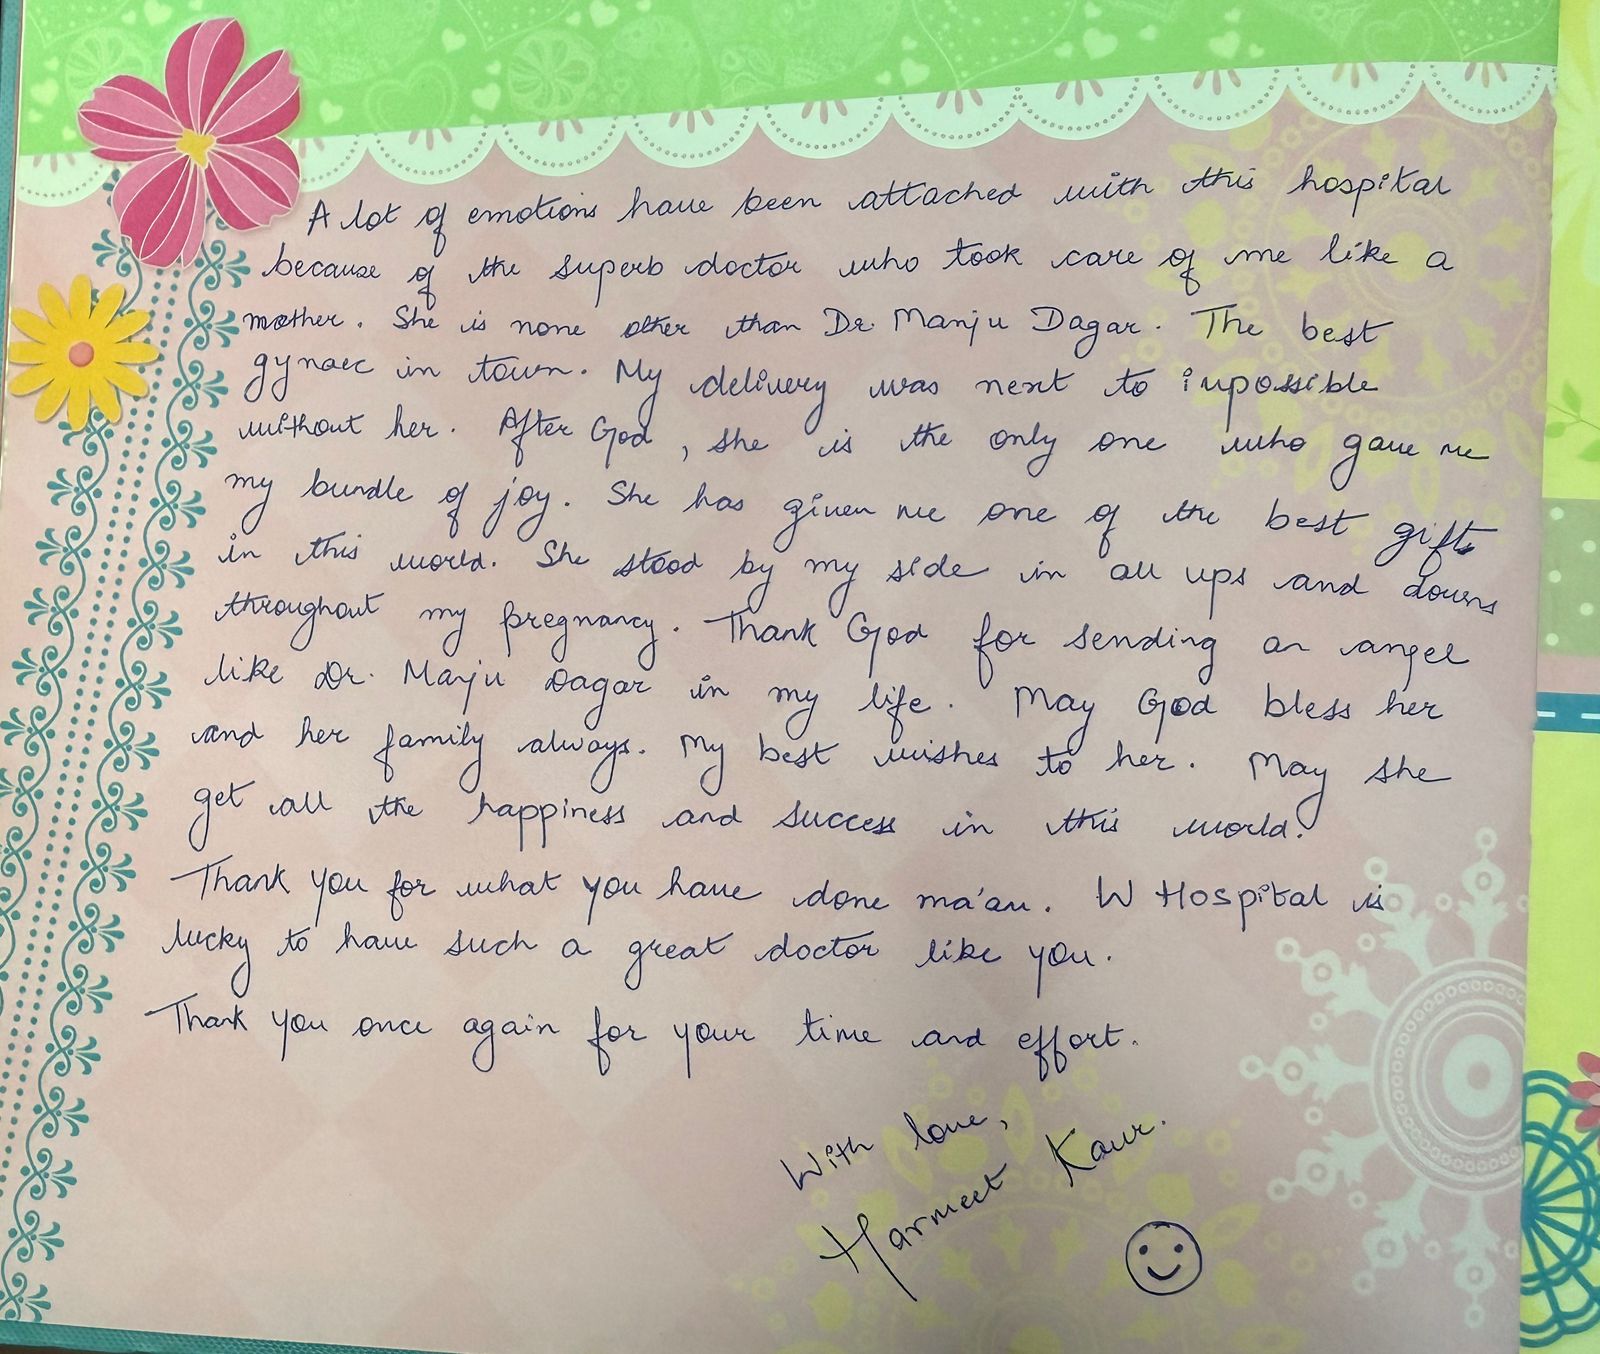 A lot of emotions have been attached with this hospital
because of the superb doctor who took care of me like a
mother. She is none other than Dr. Manju Dagar. The best
gynaec in town. My delivery was next to impossible
without her. After God, she is the only one who gave me
my bundle of joy. She has given me one of the best gifts
in this world. She stood by my side in all ups and downs
throughout my pregnancy. Thank God for sending an angel
like Dr. Manju Dagar in my life. May God bless her
and her family always. My best wishes to her. May she
get all the happiness and success in this world.
Thank you for what you have done ma'am. W Hospital is
lucky to have such a great doctor like you.
Thank you once again for your time and effort.
With love,
Harmeet Kaur.